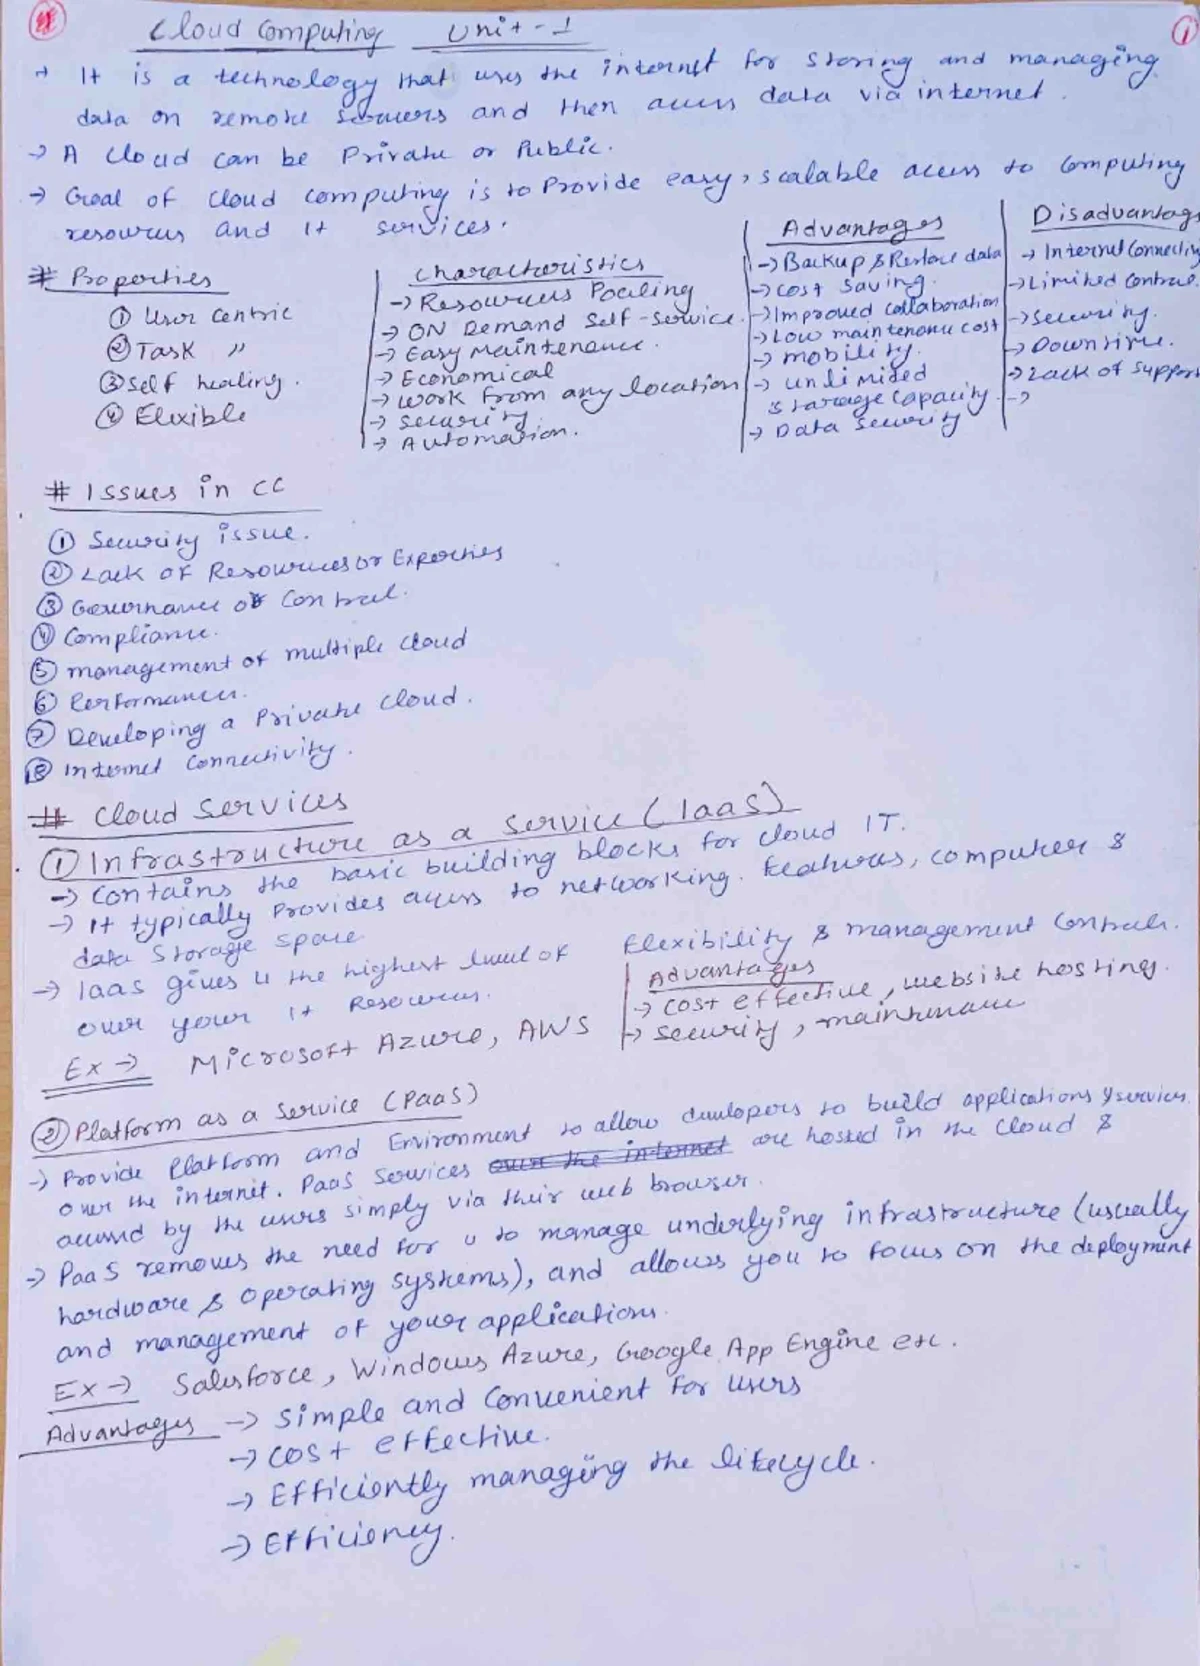 Cloud Computing Unit-1
1
→ It is a technology that uses the internet for storing and managing
data on remote servers and then access data via internet.
→ A Cloud can be Private or Public.
→ Goal of cloud computing is to Provide easy, scalable access to computing
resources and It services.
# Properties
① User centric
② Task "
③ Self healing.
④ Flexible
Characteristics
→ Resources Pooling
→ ON Demand Self-service.
→ Easy Maintenance.
→ Economical
→ Work from any location
→ Security
→ Automation.
Advantages
→ Backup & Restore data
→ Cost Saving.
→ Improved collaboration
→ Low maintenance cost
→ mobility.
→ unlimited
storage Capacity.
→ Data Security
Disadvantag
→ Internet Connectivi
→ Limited Control.
→ Security.
→ Downtime.
→ Lack of Support
→
# Issues in CC
① Security issue.
② Lack of Resources or Experties
③ Governance or Control.
④ Compliance.
⑤ management of multiple cloud
⑥ Performance.
⑦ Developing a Private cloud.
⑧ Internet Connectivity.
# Cloud Services
① Infrastructure as a Service (Iaas)
→ Contains the basic building blocks for cloud IT.
→ It typically Provides access to networking features, computer &
data storage space
→ Iaas gives u the highest level of Flexibility & management Controls.
over your It Resources.
Advantages
→ Cost effective, website hosting.
→ Security, maintenance
Ex → Microsoft Azure, AWS
② Platform as a Service (PaaS)
→ Provide Platform and Environment to allow developers to build applications & services
over the internet. PaaS Services over the internet are hosted in the cloud &
accessed by the users simply via their web browser.
→ PaaS removes the need for u to manage underlying infrastructure (usually
hardware & operating systems), and allows you to focus on the deployment
and management of your applications.
Ex → Salesforce, Windows Azure, Google App Engine etc.
Advantages → Simple and Convenient for users
→ Cost effective.
→ Efficiently managing the lifecycle.
→ Efficiency.